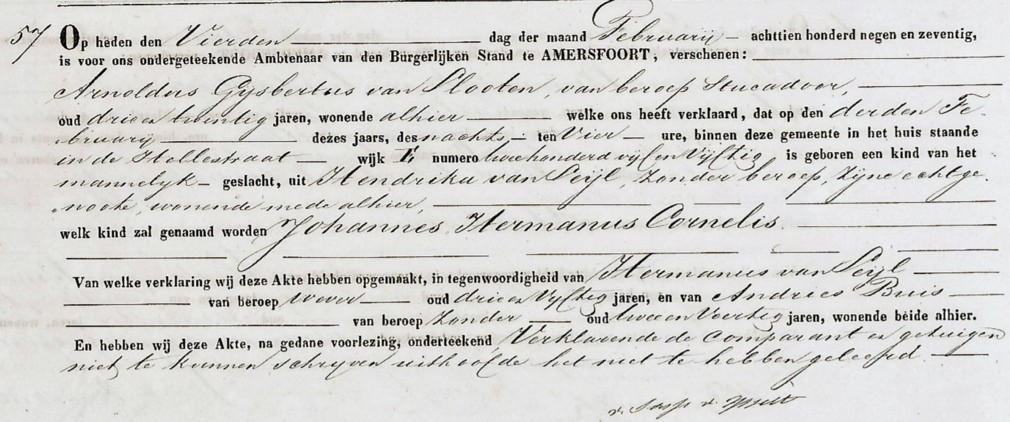 57 Op heden den Vierden dag der maand Februarij achttien honderd negen en zeventig,
is voor ons ondergeteekende Ambtenaar van den Burgerlijken Stand te AMERSFOORT, verschenen:
Arnoldus Gysbertus van Slooten, van beroep Stucadoor,
oud drieen twintig jaren, wonende alhier welke ons heeft verklaard, dat op den derden Fe-
bruarij dezes jaars, des nachts ten Vier ure, binnen deze gemeente in het huis staande
in de Hellestraat wijk E numero twee honderd vijf en Vijftig is geboren een kind van het
mannelyk geslacht, uit Hendrika van Seyl, Zonder beroep, Zyne echtge-
noote, wonende mede alhier,
welk kind zal genaamd worden Johannes Hermanus Cornelis
Van welke verklaring wij deze Akte hebben opgemaakt, in tegenwoordigheid van Hermanus van Seyl
van beroep wever oud drie en Vyftig jaren, en van Andries Buis
van beroep Zonder oud twee en Veertig jaren, wonende beide alhier.
En hebben wij deze Akte, na gedane voorlezing, onderteekend Verklarende de comparant en getuigen
niet te kunnen schryven uit hoofde het niet te hebben geleerd.